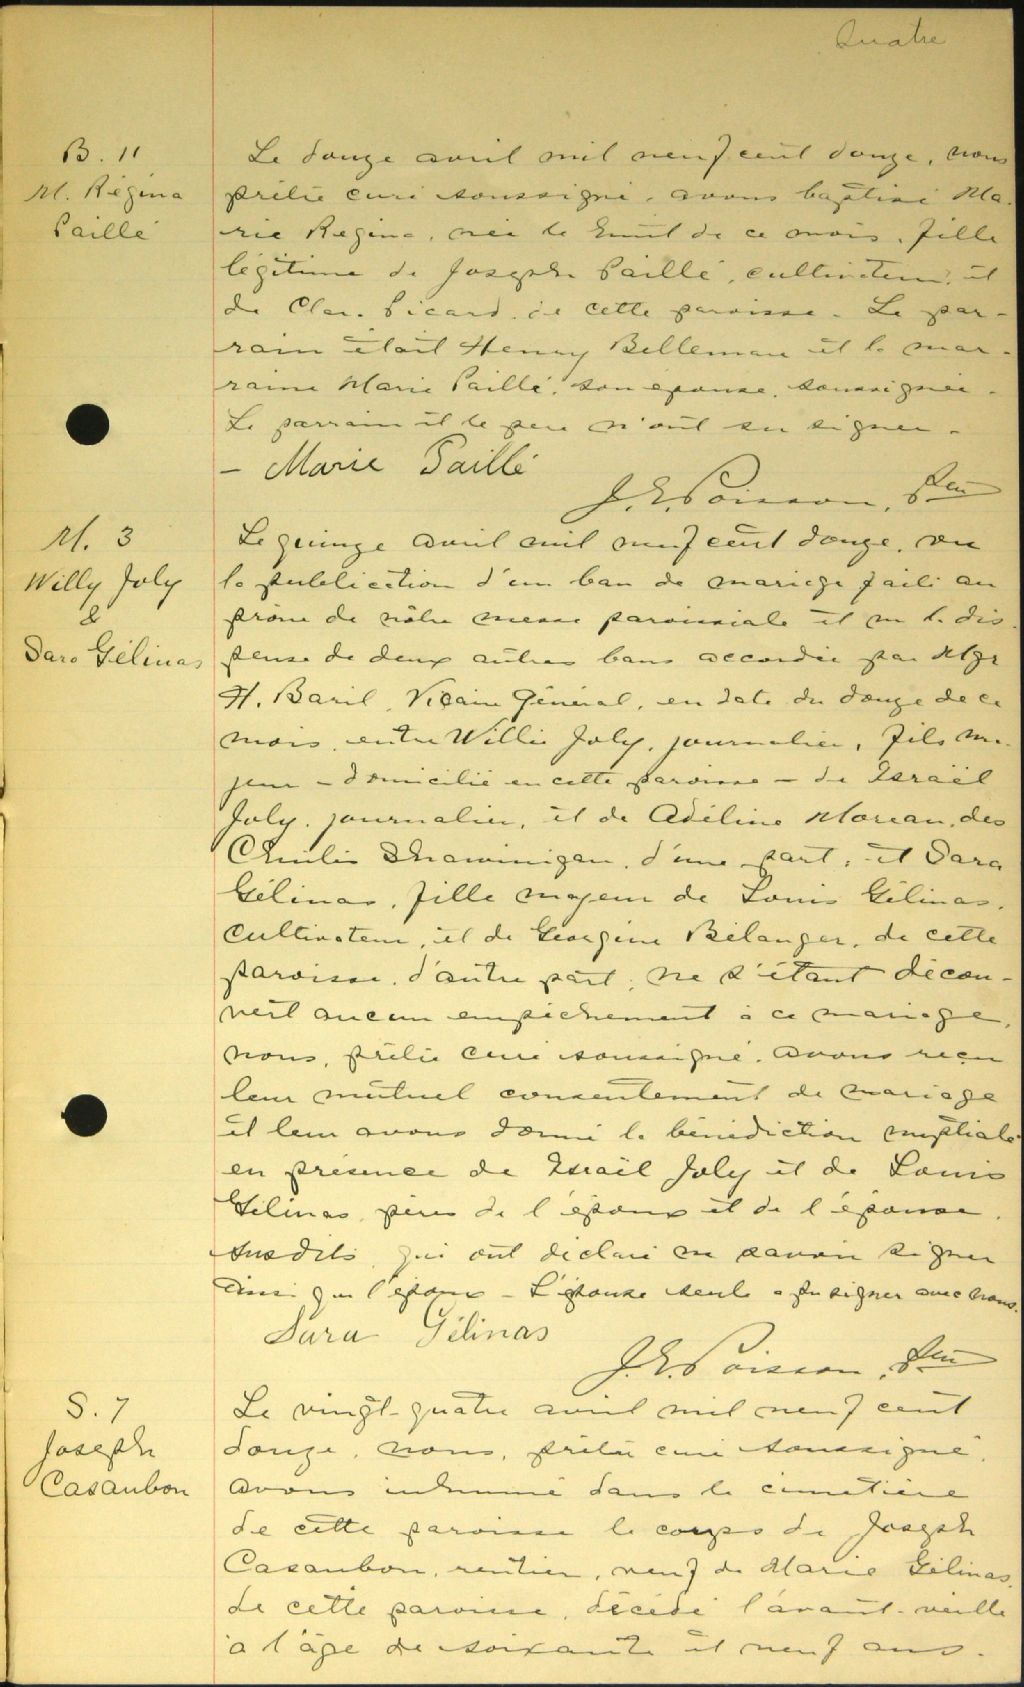 Quatre
B. 11
M. Régina
Paillé
Le douze avril mil neuf cent douze, nous
prêtre curé soussigné, avons baptisé Ma-
rie Régina, née le huit de ce mois, fille
légitime de Joseph Paillé, cultivateur, et
de Clara Picard, de cette paroisse. Le par-
rain était Henry Bellemare et la mar-
raine Marie Paillé, son épouse, soussignée.
Le parrain et le père n'ont su signer.
- Marie Paillé
J. E. Poisson, Ptre
M. 3
Willy Joly
&
Sara Gélinas
Le quinze avril mil neuf cent douze, vu
la publication d'un ban de mariage faite au
prône de nôtre messe paroissiale et vu la dis-
pense de deux autres bans accordée par Mgr
H. Baril, Vicaire Général, en date du douze de ce
mois, entre Willie Joly, journalier, fils ma-
jeur - domicilié en cette paroisse - de Israël
Joly, journalier, et de Adéline Moreau, des
Chutes Shawinigan, d'une part; et Sara
Gélinas, fille majeure de Louis Gélinas,
cultivateur, et de Georgine Bélanger, de cette
paroisse, d'autre part; ne s'étant décou-
vert aucun empêchement à ce mariage,
nous, prêtre curé soussigné, avons reçu
leur mutuel consentement de mariage
et leur avons donné la bénédiction nuptiale
en présence de Israël Joly et de Louis
Gélinas, pères de l'époux et de l'épouse,
susdits, qui ont déclaré ne savoir signer
ainsi que l'époux - L'épouse seule a pu signer avec nous.
Sara Gélinas
J. E. Poisson, Ptre
S. 7
Joseph
Casaubon
Le vingt-quatre avril mil neuf cent
douze, nous, prêtre curé soussigné,
avons inhumé dans le cimetière
de cette paroisse le corps de Joseph
Casaubon, rentier, veuf de Marie Gélinas,
de cette paroisse, décédé l'avant-veille
à l'âge de soixante et neuf ans.